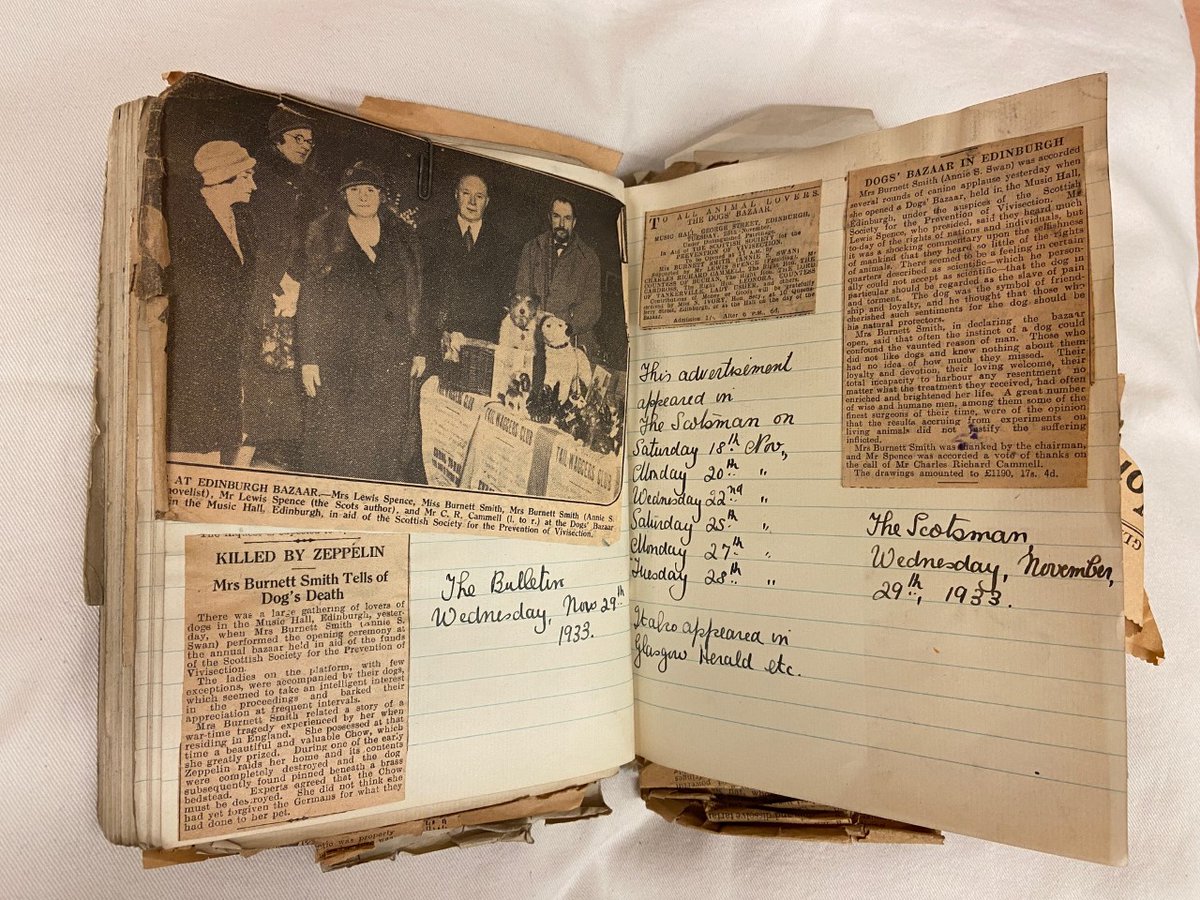 TAIL WAGGERS CLUB
TAIL WAGGERS CLUB
TAIL WAGGERS CLUB
AT EDINBURGH BAZAAR.—Mrs Lewis Spence, Miss Burnett Smith, Mrs Burnett Smith (Annie S.
novelist), Mr Lewis Spence (the Scots author), and Mr C. R. Cammell (l. to r.) at the Dogs' Bazaar
in the Music Hall, Edinburgh, in aid of the Scottish Society for the Prevention of Vivisection.
KILLED BY ZEPPELIN
Mrs Burnett Smith Tells of
Dog's Death
There was a large gathering of lovers of
dogs in the Music Hall, Edinburgh, yester-
day, when Mrs Burnett Smith (Annie S.
Swan) performed the opening ceremony at
the annual bazaar held in aid of the funds
of the Scottish Society for the Prevention of
Vivisection.
The ladies on the platform, with few
exceptions, were accompanied by their dogs,
which seemed to take an intelligent interest
in the proceedings and barked their
appreciation at frequent intervals.
Mrs Burnett Smith related a story of a
war-time tragedy experienced by her when
residing in England. She possessed at that
time a beautiful and valuable Chow, which
she greatly prized. During one of the early
Zeppelin raids her home and its contents
were completely destroyed and the dog
subsequently found pinned beneath a brass
bedstead. Experts agreed that the Chow
must be destroyed. She did not think she
had yet forgiven the Germans for what they
had done to her pet.
The Bulletin
Wednesday, Nov. 29th
1933.
TO ALL ANIMAL LOVERS.
THE DOGS' BAZAAR.
MUSIC HALL, GEORGE STREET, EDINBURGH,
TUESDAY, 28th November.
Under Distinguished Patronage.
In Aid of THE SCOTTISH SOCIETY for the
PREVENTION OF VIVISECTION.
To be Opened at 11 A.M. by
Mrs BURNETT SMITH (ANNIE S. SWAN)
Admission 1/-. After 6 P.M., 6d.
This advertisement
appeared in
The Scotsman on
Saturday 18th Nov,
Monday 20th "
Wednesday 22nd "
Saturday 25th "
Monday 27th "
Tuesday 28th "
It also appeared in
Glasgow Herald etc.
DOGS' BAZAAR IN EDINBURGH
Mrs Burnett Smith (Annie S. Swan) was accorded
several rounds of canine applause yesterday when
she opened a Dogs' Bazaar, held in the Music Hall,
Edinburgh, under the auspices of the Scottish
Society for the Prevention of Vivisection. Mr
Lewis Spence, who presided, said they heard much
to-day of the rights of nations and individuals, but
it was a shocking commentary upon the selfishness
of mankind that they heard so little of the rights
of animals. There seemed to be a feeling in certain
quarters described as scientific—which he person-
ally could not accept as scientific—that the dog in
particular should be regarded as the slave of pain
and torment. The dog was the symbol of friend-
ship and loyalty, and he thought that those who
cherished such sentiments for the dog should be
his natural protectors.
Mrs Burnett Smith, in declaring the bazaar
open, said that often the instinct of a dog could
confound the vaunted reason of man. Those who
did not like dogs and knew nothing about them
had no idea of how much they missed. Their
loyalty and devotion, their loving welcome, their
total incapacity to harbour any resentment no
matter what the treatment they received, had often
enriched and brightened her life. A great number
of wise and humane men, among them some of the
finest surgeons of their time, were of the opinion
that the results accruing from experiments on
living animals did not justify the suffering
inflicted.
Mrs Burnett Smith was thanked by the chairman,
and Mr Spence was accorded a vote of thanks on
the call of Mr Charles Richard Cammell.
The drawings amounted to £1190, 17s. 4d.
The Scotsman
Wednesday, November,
29th, 1933.